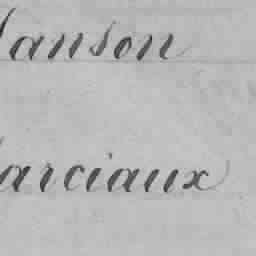 anson
arciaux